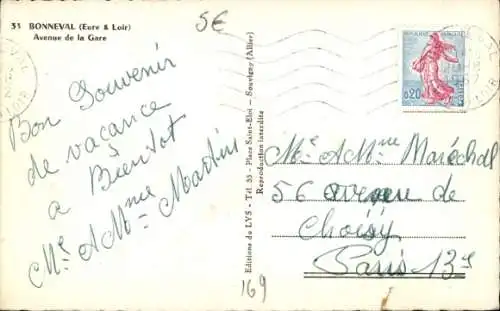 33 BONNEVAL (Eure & Loir)
Avenue de la Gare
5€
0,20
Bon Souvenir
de vacance
a Bientot
Mr & Mme Martin
Editions de LYS - Tél. 33 - Place Saint-Eloi - Souvigny (Allier)
Reproduction interdite
Mr & Mme Maréchal
56 avenue de
Choisy
Paris 13e
169